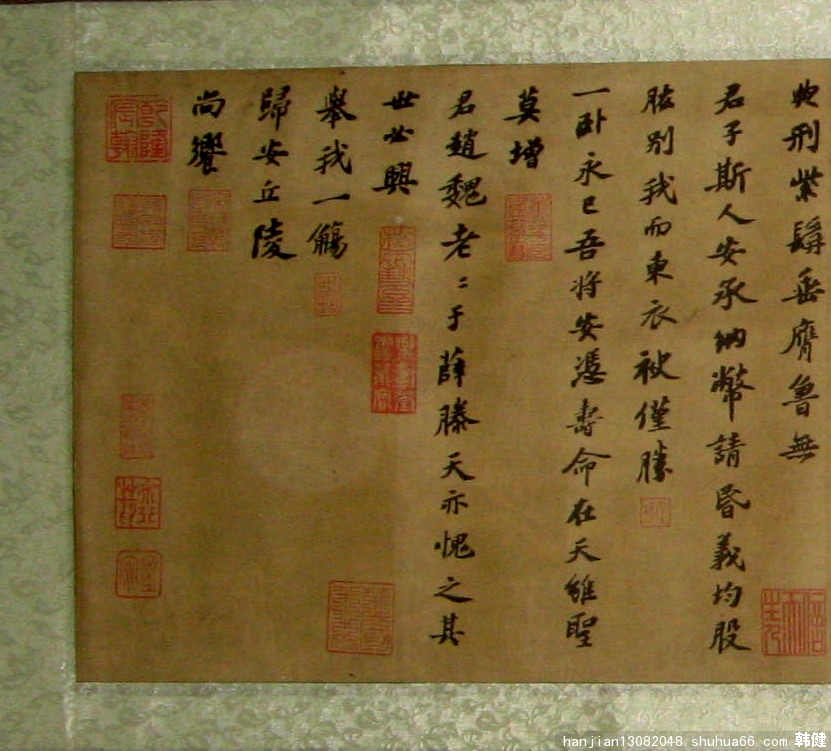 典刑紫髯垂膺魯無
君子斯人安承納幣請昏義均股
肱別我而東衣袂僅勝
一臥永已吾將安憑壽命在天雖聖
莫增
君趙魏老〻于薛滕天亦愧之其
世必興
舉我一觴
歸安丘陵
尚饗
hanjian13082048.shuhua66.com 韩健